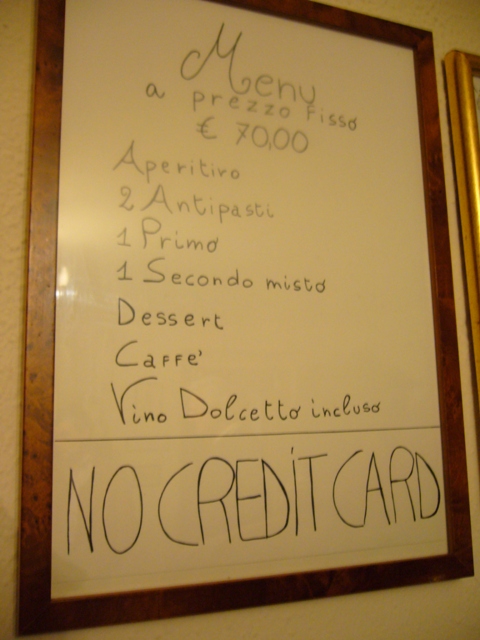 Menu
a prezzo fisso
€ 70,00
Aperitivo
2 Antipasti
1 Primo
1 Secondo misto
Dessert
Caffe'
Vino Dolcetto incluso
NO CREDIT CARD